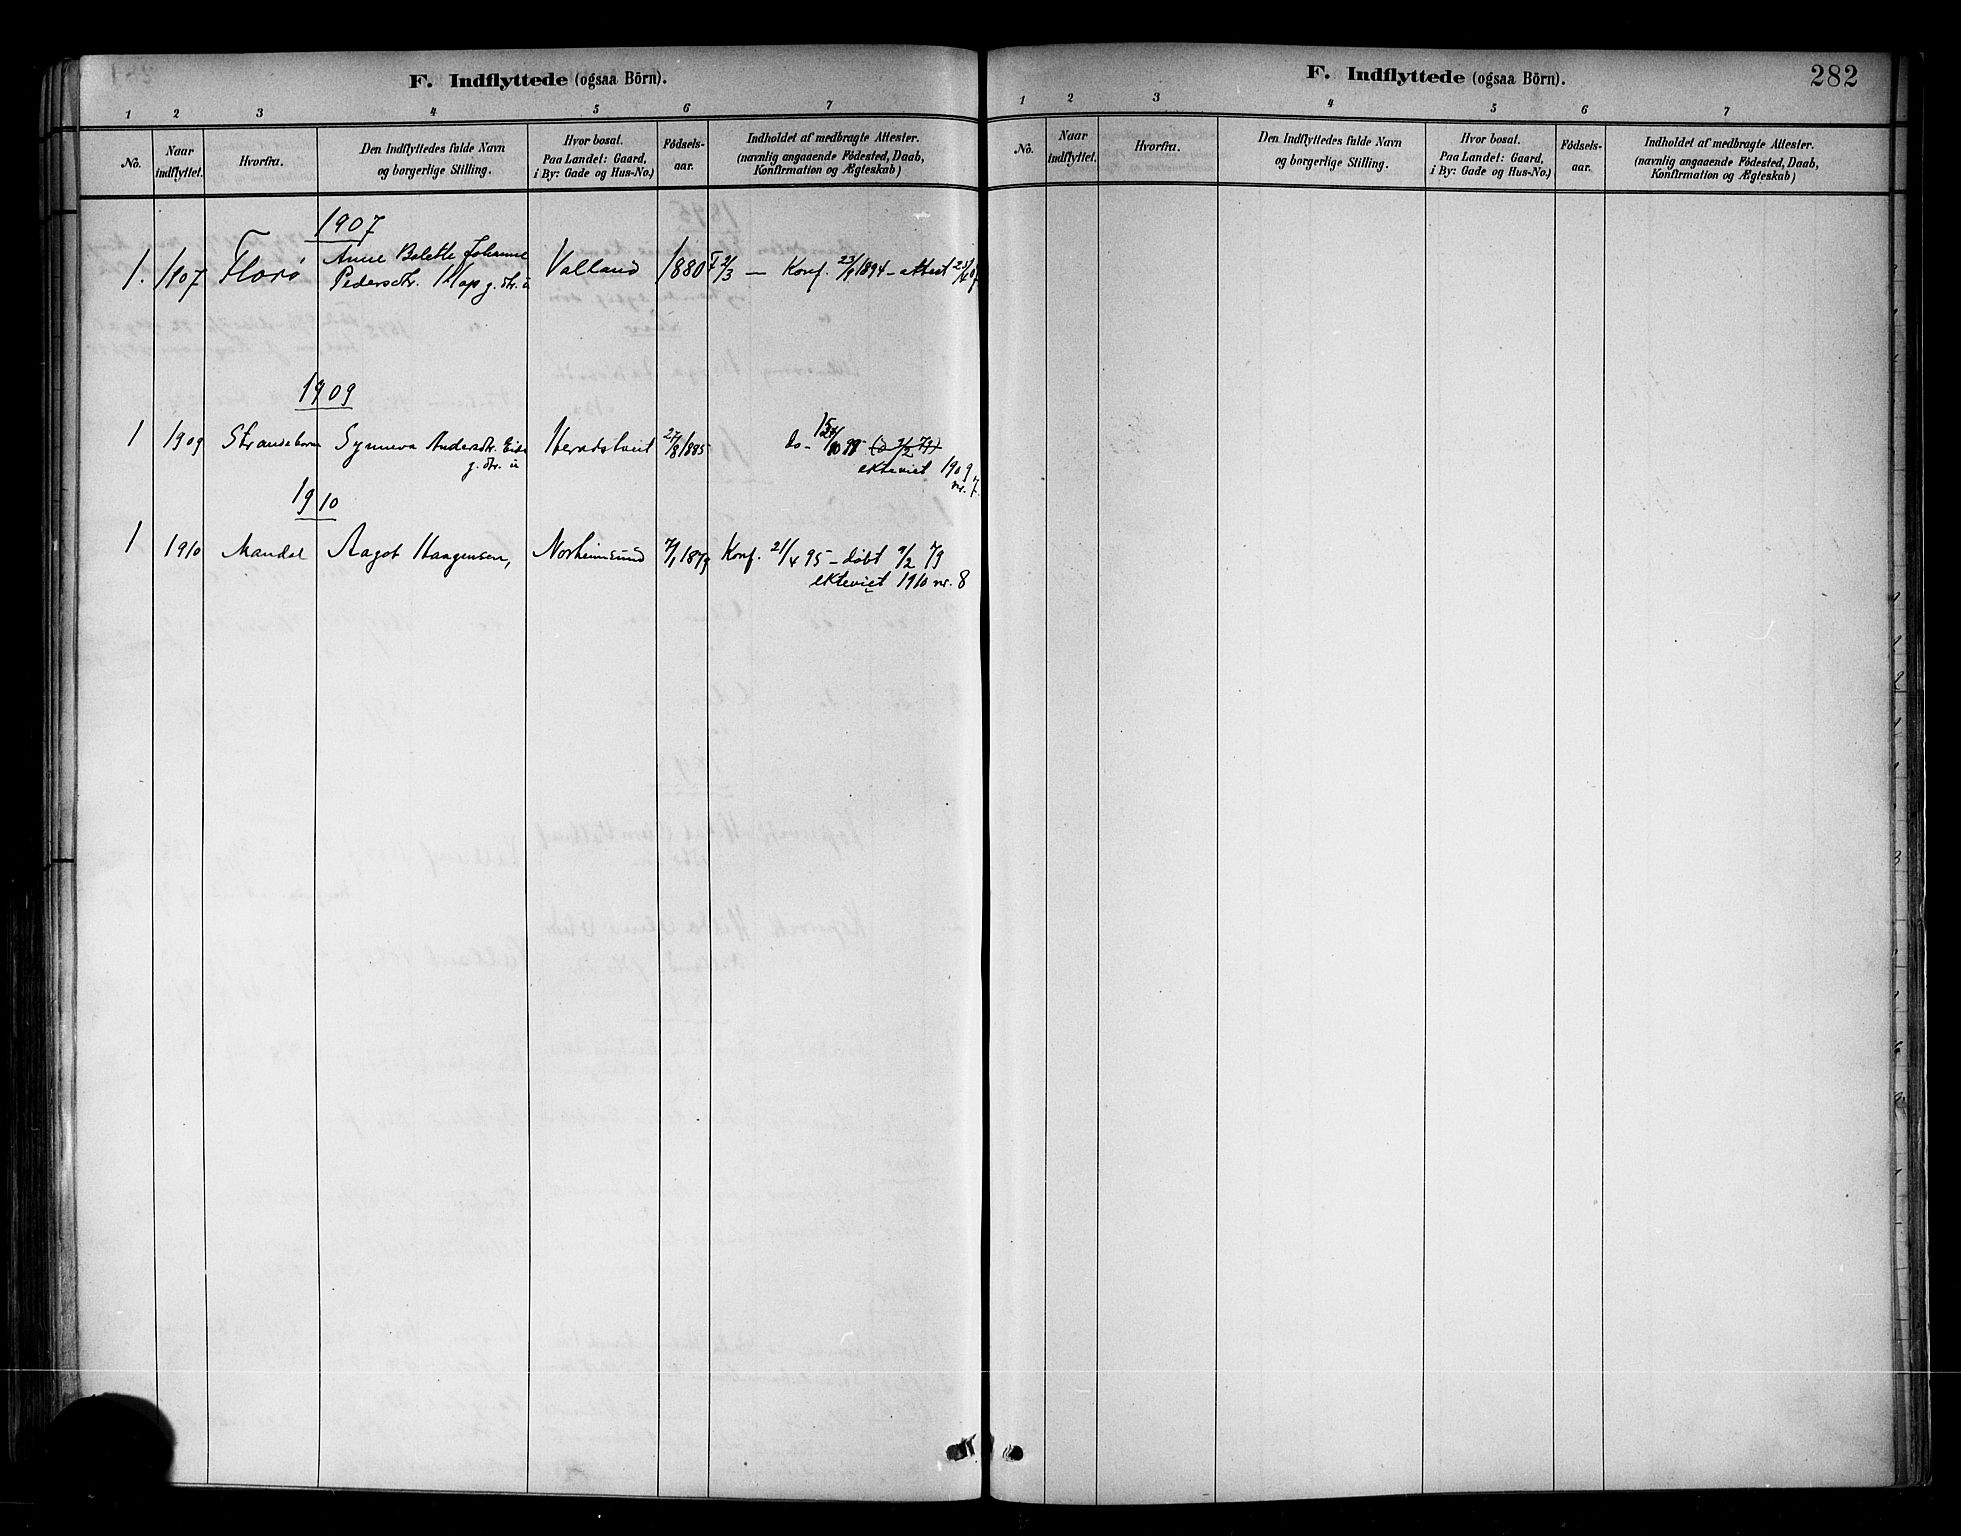 F. Indflyttede (ogsaa Börn).
1 2 3 4 5 6 7
No. Naar indflyttet. Hvorfra. Den Indflyttedes fulde Navn og borgerlige Stilling. Hvor bosat. Paa Landet: Gaard, i By: Gade og Hus-No.) Födsels-aar. Indholdet af medbragte Attester. (navnlig angaaende Födested, Daab, Konfirmation og Ægteskab)
1907
1. 1907 Florø Anne Bolette Johanne Valland 1880 2/3 — Konf. 23/9 1894 – attest
Pedersdtr. Klap g. dtr. u
1909
1 1909 Strandebarm Synneva Andersdtr. Eide Heradstveit 27/8 1885 do-
g. dtr. u
ekteviet 1909
nr. 7.
1910
1 1910 Mandal Aagot Haagensen, Norheimsund 7/1 1879 Konf. 21/4 95 – døbt 9/2 79
ekteviet 1910 nr. 8
F. Indflyttede (ogsaa Börn). 282
1 2 3 4 5 6 7
No. Naar indflyttet. Hvorfra. Den Indflyttedes fulde Navn og borgerlige Stilling. Hvor bosat. Paa Landet: Gaard, i By: Gade og Hus-No.) Födsels-aar. Indholdet af medbragte Attester. (navnlig angaaende Födested, Daab, Konfirmation og Ægteskab)